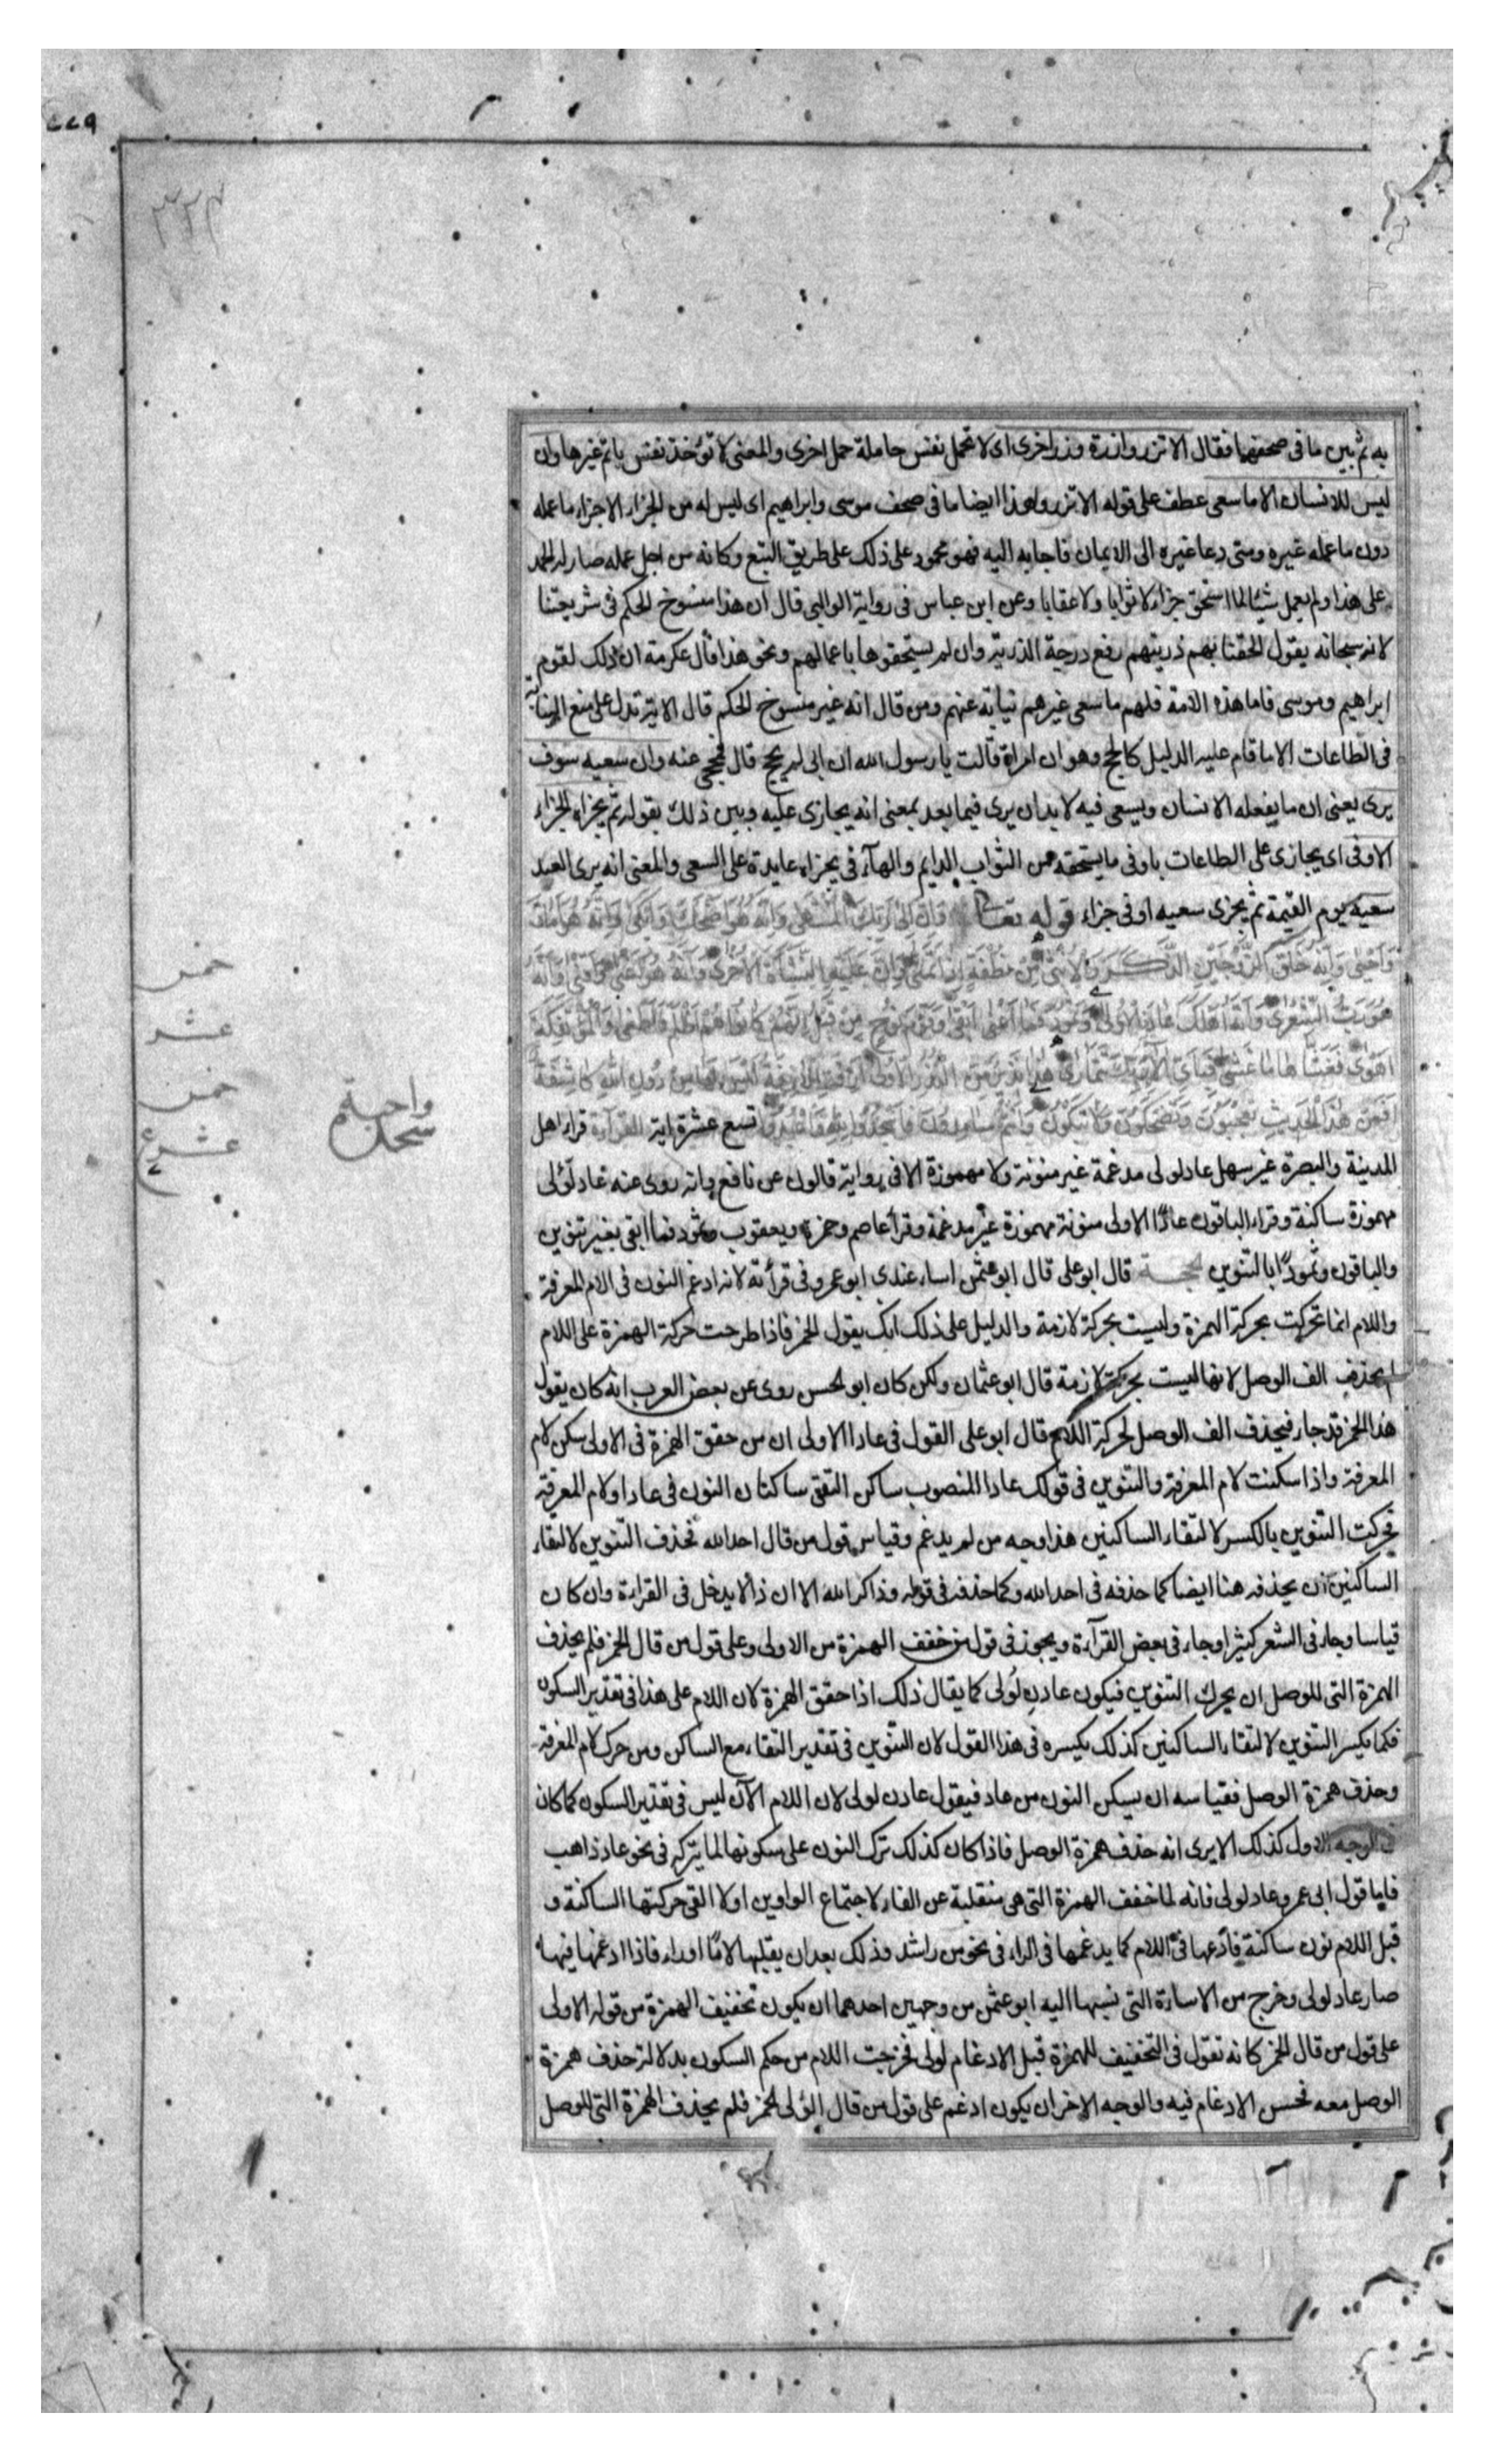 به ثم بين ما فى صحفهما فقال الا تزر وازرة وزر اخرى اى لا تحمل نفس حاملة حمل اخرى والمعنى لا تؤخذ نفس باثم غيرها وان
ليس للانسان الا ما سعى عطف على قوله الا تزر وهذا ايضا ما فى صحف موسى وابراهيم اى ليس له من الجزاء الا جزاء ما عمله
دون ما عمله غيره ومتى دعا غيره الى الايمان فاجابه اليه فهو محمود على ذلك على طريق التبع وكانه من اجل عمله صار له الحمد
على هذا ولو لم يعمل شيئا لما استحق جزاء لا ثوابا ولا عقابا وعن ابن عباس فى رواية الوالبى قال ان هذا منسوخ الحكم فى شريعتنا
لانه سبحانه يقول الحقنا بهم ذريتهم رفع درجة الذرية وان لم يستحقوها باعمالهم ونحو هذا قال عكرمة ان ذلك لقوم
ابراهيم وموسى فاما هذه الامة فلهم ما سعى غيرهم نيابة عنهم ومن قال انه غير منسوخ الحكم قال الاية تدل على منع النيابة
فى الطاعات الا ما قام عليه الدليل كالحج وهو ان امراة قالت يا رسول الله ان ابى لم يحج قال فحجى عنه وان سعيه سوف
يرى يعنى ان ما يفعله الانسان ويسعى فيه لا بد ان يرى فيما بعد بمعنى انه يجازى عليه وبين ذلك بقوله ثم يجزاه الجزاء
الاوفى اى يجازى على الطاعات باوفى ما يستحقه من الثواب الدايم والهآء فى يجزاه عايدة على السعى والمعنى انه يرى العبد
سعيه يوم القيمة ثم يجزى سعيه اوفى جزاء قوله تعالى وَاَنَّ اِلٰى رَبِّكَ الْمُنْتَهٰى وَاَنَّهُ هُوَ اَضْحَكَ وَاَبْكٰى وَاَنَّهُ هُوَ اَمَاتَ
وَاَحْيٰى وَاَنَّهُ خَلَقَ الزَّوْجَيْنِ الذَّكَرَ وَالْاُنْثٰى مِنْ نُطْفَةٍ اِذَا تُمْنٰى وَاَنَّ عَلَيْهِ النَّشْاَةَ الْاُخْرٰى وَاَنَّهُ هُوَ اَغْنٰى وَاَقْنٰى وَاَنَّهُ
هُوَ رَبُّ الشِّعْرٰى وَاَنَّهُ اَهْلَكَ عَادًا الْاُولٰى وَثَمُودَ فَمَا اَبْقٰى وَقَوْمَ نُوحٍ مِنْ قَبْلُ اِنَّهُمْ كَانُوا هُمْ اَظْلَمَ وَاَطْغٰى وَالْمُؤْتَفِكَةَ
اَهْوٰى فَغَشّٰاهَا مَا غَشّٰى فَبِاَىِّ اٰلَاءِ رَبِّكَ تَتَمَارٰى هٰذَا نَذِيرٌ مِنَ النُّذُرِ الْاُولٰى اَزِفَتِ الْاٰزِفَةُ لَيْسَ لَهَا مِنْ دُونِ اللّٰهِ كَاشِفَةٌ
اَفَمِنْ هٰذَا الْحَدِيثِ تَعْجَبُونَ وَتَضْحَكُونَ وَلَا تَبْكُونَ وَاَنْتُمْ سَامِدُونَ فَاسْجُدُوا لِلّٰهِ وَاعْبُدُوا تسع عشرة اية القرآءة قراء اهل
المدينة والبصرة غير سهل عاد لولى مدغمة غير منونة ولا مهموزة الا فى رواية قالون عن نافع وانه روى عنه عاد لؤلى
مهموزة ساكنة وقراء الباقون عادًا الاولى منونة مهموزة غير مدغمة وقرأ عاصم وحمزة ويعقوب وثمود فما ابقى بغير تنوين
والباقون وثمودًا بالتنوين الحجة قال ابو على قال ابو عثمن اساء عندى ابو عمرو فى قرأته لانه ادغم النون فى الام المعرفة
واللام انما تحركت بحركة الهمزة وليست بحركة لازمة والدليل على ذلك انك يقول الحمر فاذا طرحت حركة الهمزة على اللام
لم يحذف الف الوصل لانها ليست بحركة لازمة قال ابو عثمان ولكن كان ابو الحسن روى عن بعض العرب انه كان يقول
هذا لحمر قد جاء فيحذف الف الوصل لحركة اللام قال ابو على القول فى عادا الاولى ان من حقق الهمزة فى الاولى سكن لام
المعرفة واذا سكنت لام المعرفة والتنوين فى قولك عادا المنصوب ساكن التقى ساكنان النون فى عادا ولام المعرفة
فحركت التنوين بالكسر لالتقاء الساكنين هذا وجه من لم يدغم وقياس قول من قال احد الله فحذف التنوين لالتقاء
الساكنين ان يحذفه هنا ايضا كما حذفه فى احد الله وكما حذفه فى قوله وذاكر الله الا ان ذا لا يدخل فى القراءة وان كان
قياسا وجاء فى الشعر كثيرا وجاء فى بعض القرآءة ويجوز فى قول من خفف الهمزة من الاولى وعلى قول من قال الحمر فلم يحذف
الهمزة التى للوصل ان يحرك التنوين فيكون عادن لولى كما يقال ذلك اذا حقق الهمزة لان اللام على هذا فى تقدير السكون
فكما يكسر التنوين لالتقاء الساكنين كذلك يكسره فى هذا القول لان التنوين فى تقدير التقاء مع الساكن ومن حرك لام المعرفة
وحذف همزة الوصل فقياسه ان يسكن النون من عاد فيقول عادن لولى لان اللام الآن ليس فى تقدير السكون كما كان
فى الوجه الاول كذلك الا يرى انه حذف همزة الوصل فاذا كان كذلك ترك النون على سكونها لما يتركه فى نحو عاد ذاهب
فاما قول ابى عمرو عاد لولى فانه لما خفف الهمزة التى هى منقلبة عن الفاء لاجتماع الواوين اولا القى حركتها الساكنة و
قبل اللام نون ساكنة فادغمها فى اللام كما يدغمها فى الراء فى نحو من راشد وذلك بعد ان يقلبها لامًا او راء فاذا ادغمها فيها
صار عاد لولى وخرج من الاساءة التى نسبها اليه ابو عثمن من وجهين احدهما ان يكون تخفيف الهمزة من قوله الاولى
على قول من قال لحمر كانه تقول فى التخفيف للهمزة قبل الادغام لولى فخرجت اللام من حكم السكون بدلالة حذف همزة
الوصل معه فحسن الادغام فيه والوجه الاخر ان يكون ادغم على قول من قال الولى الحمر فلم يحذف الهمزة التى للوصل
خمس
عشر
خمس
عشر
واجبة
سجدة
٣٢٤